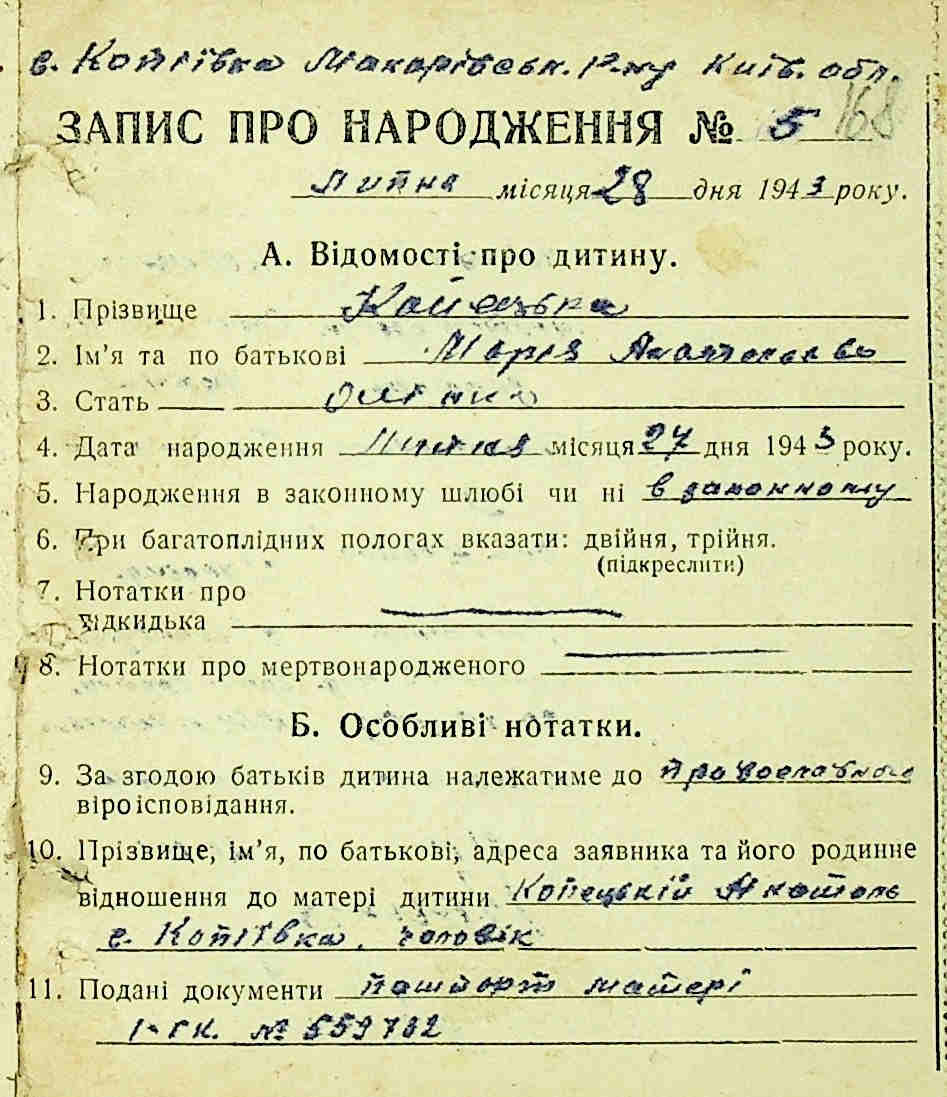 с. Копіївка Макарівськ. р-ну Київ. обл.
ЗАПИС ПРО НАРОДЖЕННЯ № 5 168
Липня місяця 28 дня 1943 року.
А. Відомості про дитину.
1. Прізвище Копецька
2. Ім’я та по батькові Марія Анатол
3. Стать
4. Дата народження Липня місяця 27 дня 1943 року.
5. Народження в законному шлюбі чи ні в законному
6. При багатоплідних пологах вказати: двійня, трійня.
(підкреслити)
7. Нотатки про
підкидька
8. Нотатки про мертвонародженого
Б. Особливі нотатки.
9. За згодою батьків дитина належатиме до православного
віроісповідання.
10. Прізвище, ім’я, по батькові, адреса заявника та його родинне
відношення до матері дитини Копецький Анатоль
с. Копіївка, чоловік
11. Подані документи пашпорт матері
№ 559702